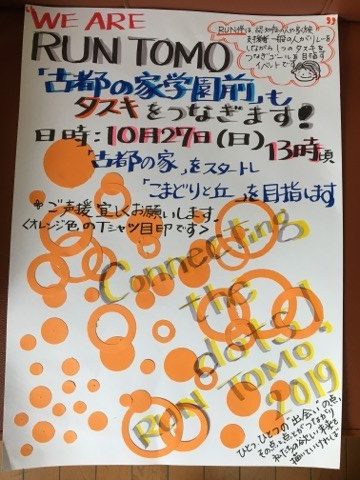 "WE ARE
RUN TOMO"
RUN伴は、認知症の人や家族、
支援者、一般の人がリレーを
しながら1つのタスキを
つなぎゴールを目指す
イベントです
「古都の家学園前」も
タスキをつなぎます!
日時:10月27日(日)13時頃
「古都の家」をスタートし
「こまどりと丘」を目指します
*ご声援宜しくお願いします。
<オレンジ色のTシャツ目印です>
Connecting
the
dots!
RUN TOMO
2019
ひとつ、ひとつの"出会い"の点、
その点と点とがつながり
私たちの欲しい未来を
描いていければ